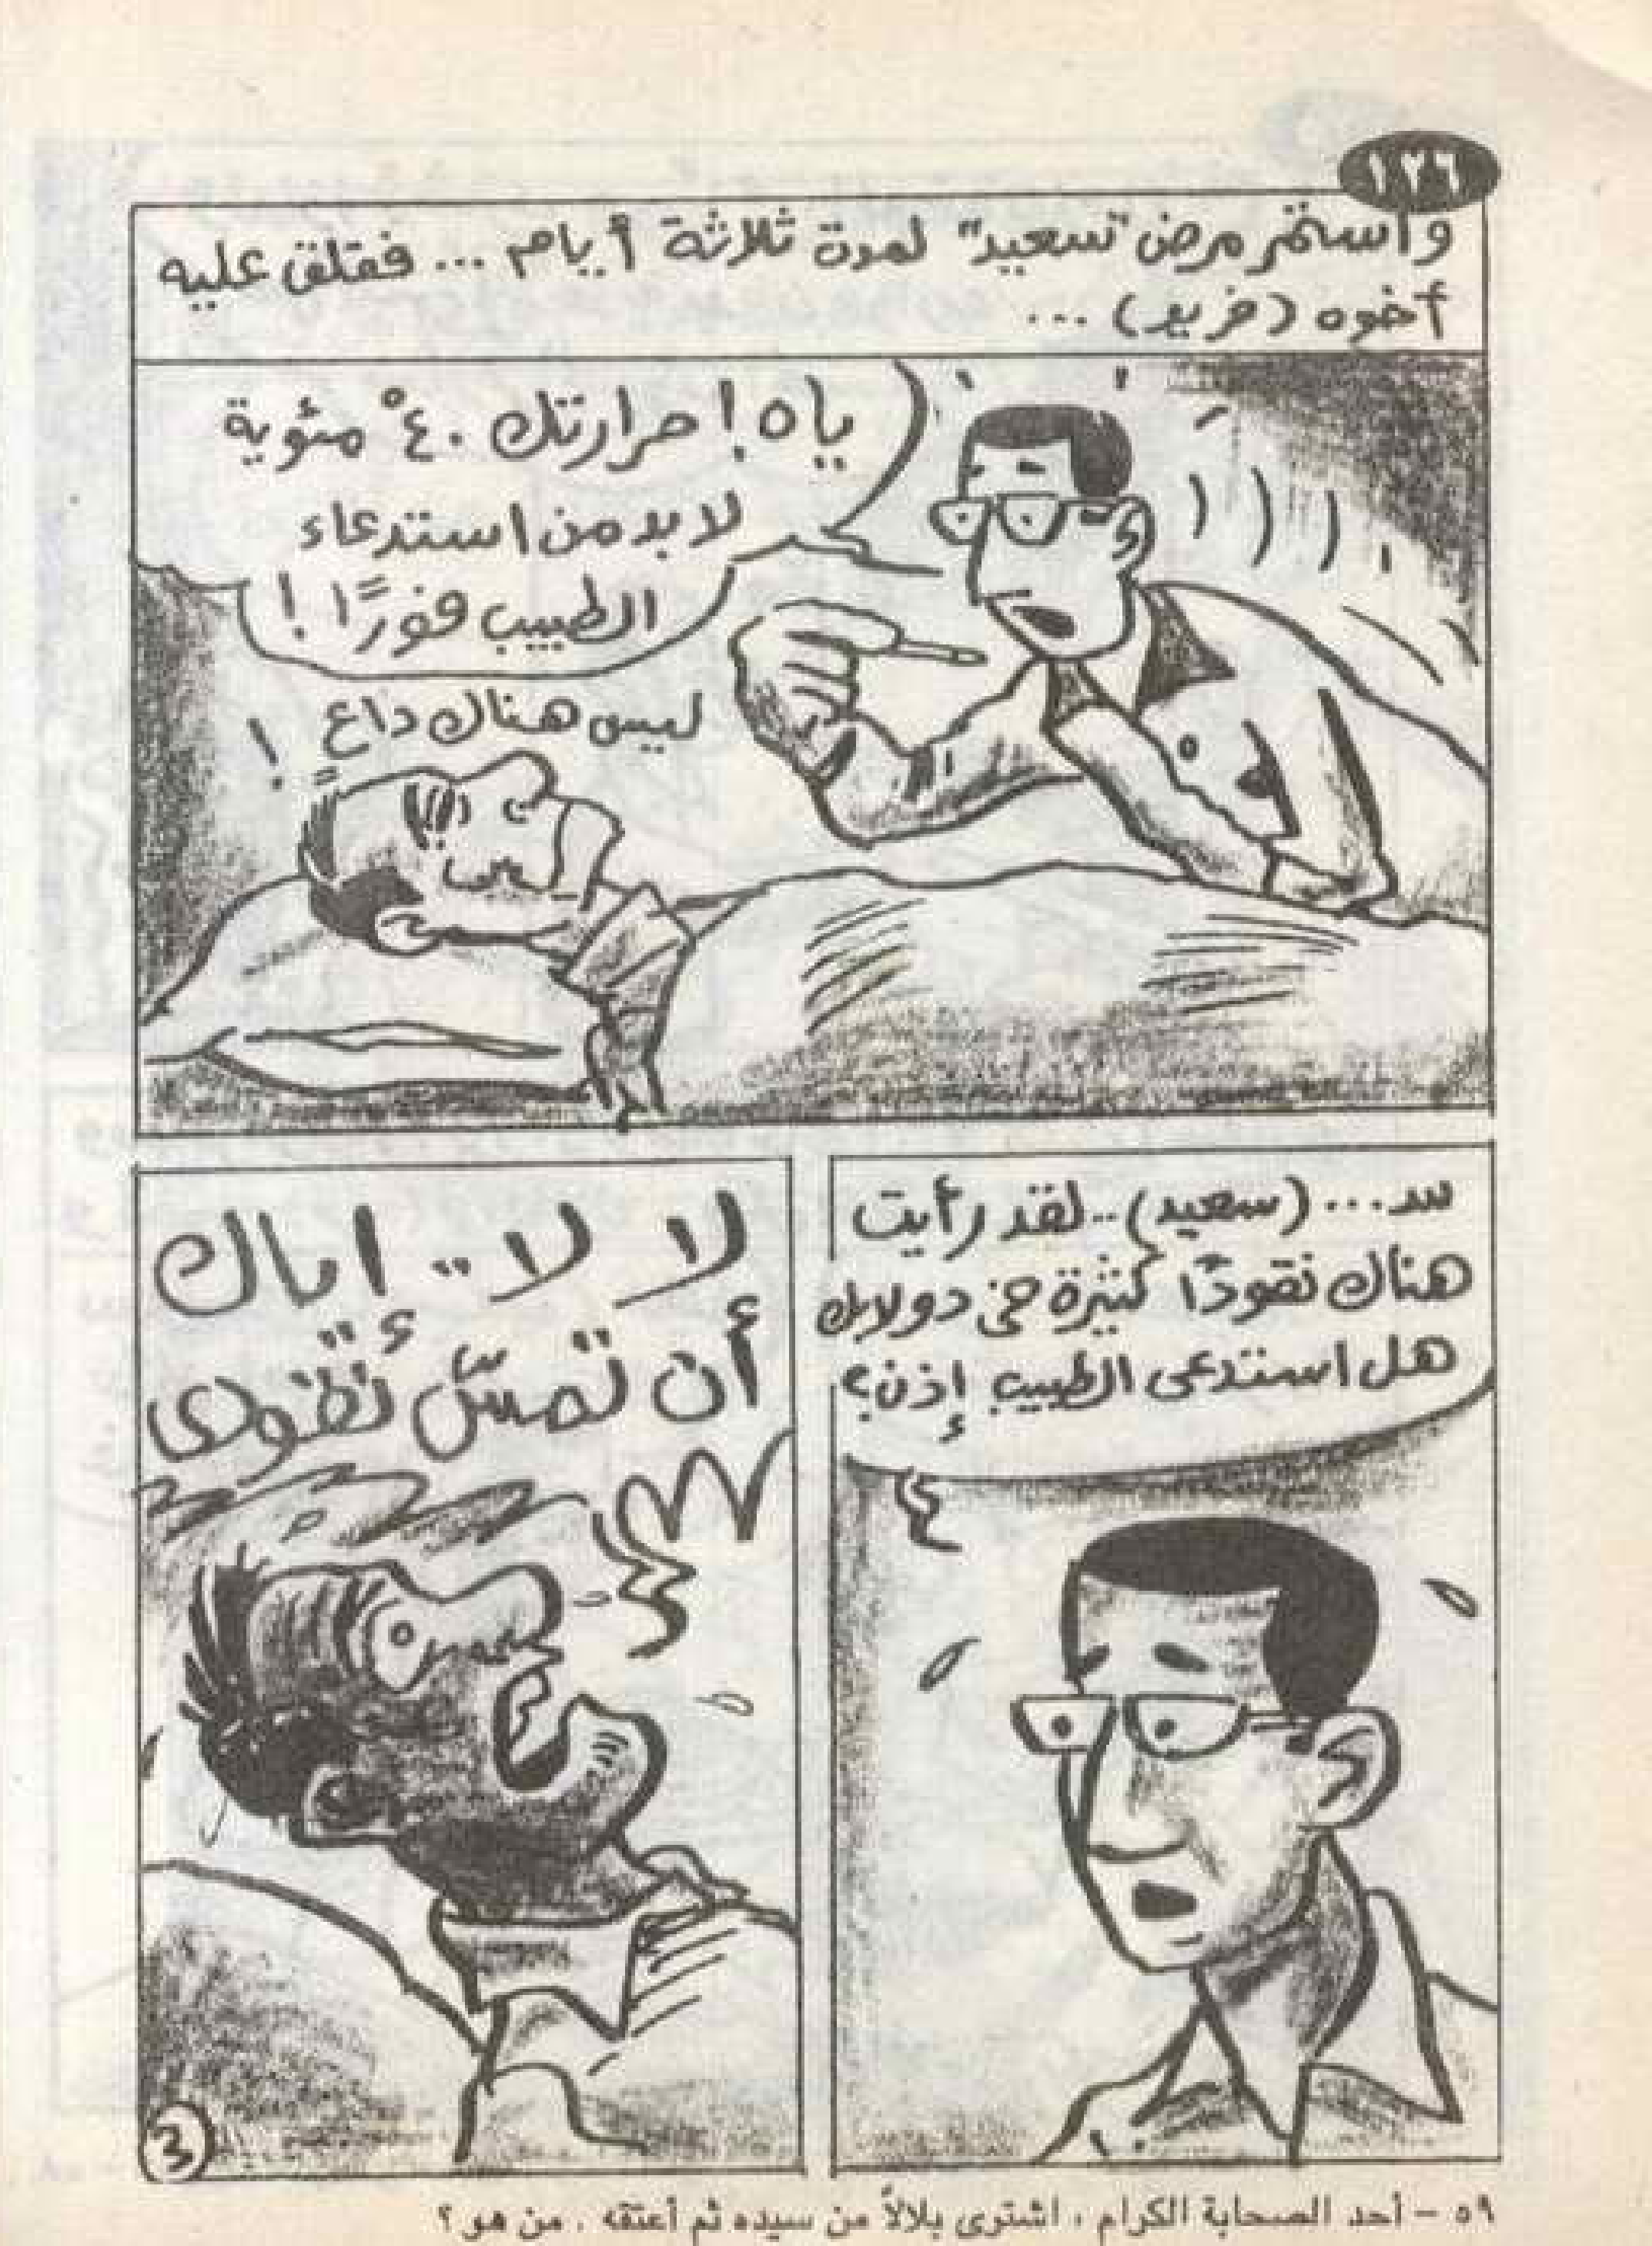 ١٢٦
واستمر مرض "سعيد" لمدة ثلاثة أيام ... فقلق عليه
أخوه (فريد) ...
ياه! حرارتك ٤٠° مئوية
لا بد من استدعاء
الطبيب فورًا!!
ليس هناك داع!
سـ... (سعيد).. لقد رأيت
هناك نقودًا كثيرة فى دولابك
هل استدعى الطبيب إذن؟
لا لا.. إياك
أن تمسّ نقودى
3
٥٩ - أحد الصحابة الكرام ، اشترى بلالاً من سيده ثم أعتقه . من هو ؟